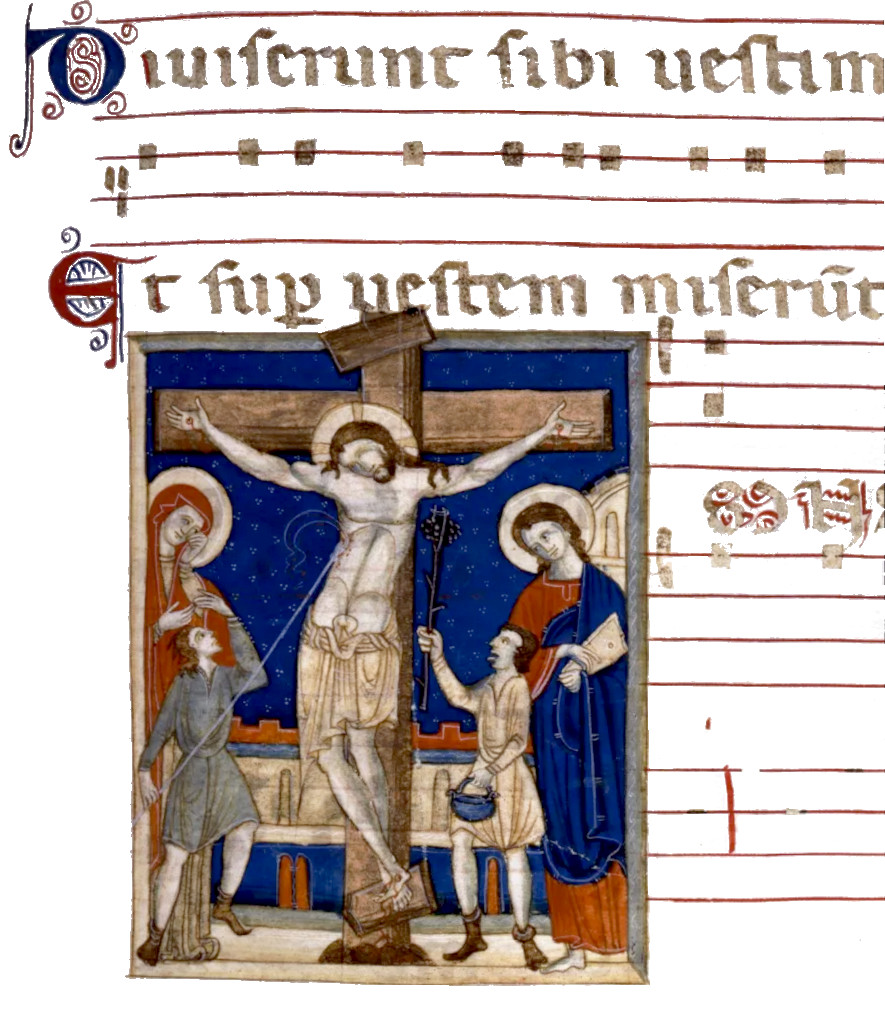 Diuiserunt sibi uestim
Et sup̱ uestem miserūt